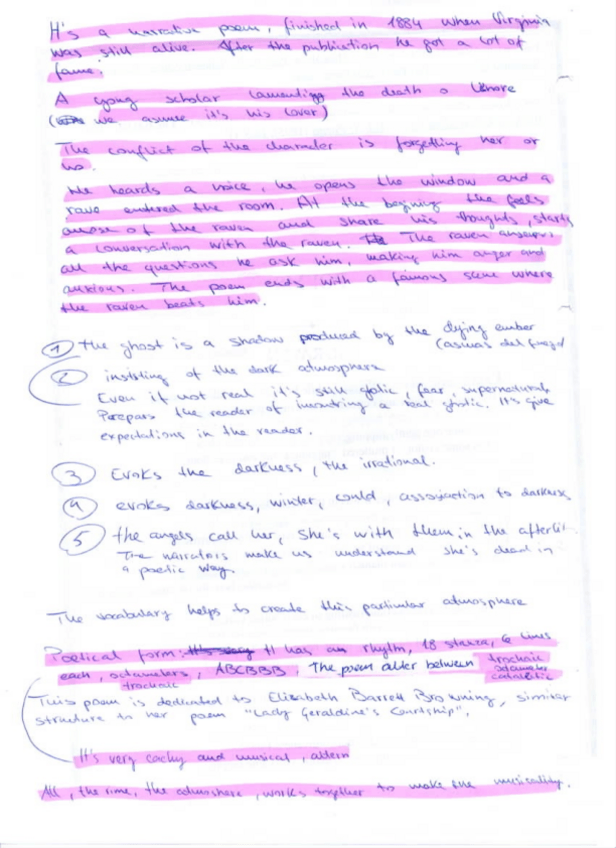 It's a narrative poem, finished in 1884 when Virginia
was still alive. After the publication he got a lot of
fame.
A yong scholar lamenting the death o
( we asume it's his lover)
The conflict of the character is forgetting her or
no.
He heards a voice, he opens the window and a
rave entered the room. At the begining the feels
of the raven and share his thoughts, starts
a conversation with the raven. The raven answers
all the questions he ask him, making him anger and
anxious. The poem ends with a famous scene where
the raven beats him.
1 the ghost is a shadow produced by the dying ember
(ascuas del fuego)
2 of the dark atmosphere
Even if not real it's still gotic, fear, supernatural
the reader of a real gotic. It's give
expectations in the reader.
3 Evoks the darkness, the irrational.
4 evoks darkness, winter, could, to darkness
5 the angels call her, she's with them in the afterli
The narrators make us understand she's dead in
a poetic way.
The vocabulary helps to create this particular atmosphere
Poetical form: It has an rhythm, 18 stanza, 6 lines
each, octameters, ABCBBB. The poem alter between trochaic
trochaic octameter
catalectic
This poem is dedicated to Elizabeth Barrett Browning, similar
structure to her poem "Lady Geraldine's Courtship".
It's very cachy and musical,
All, the rime, the atmoshere, works together to make the musicality.